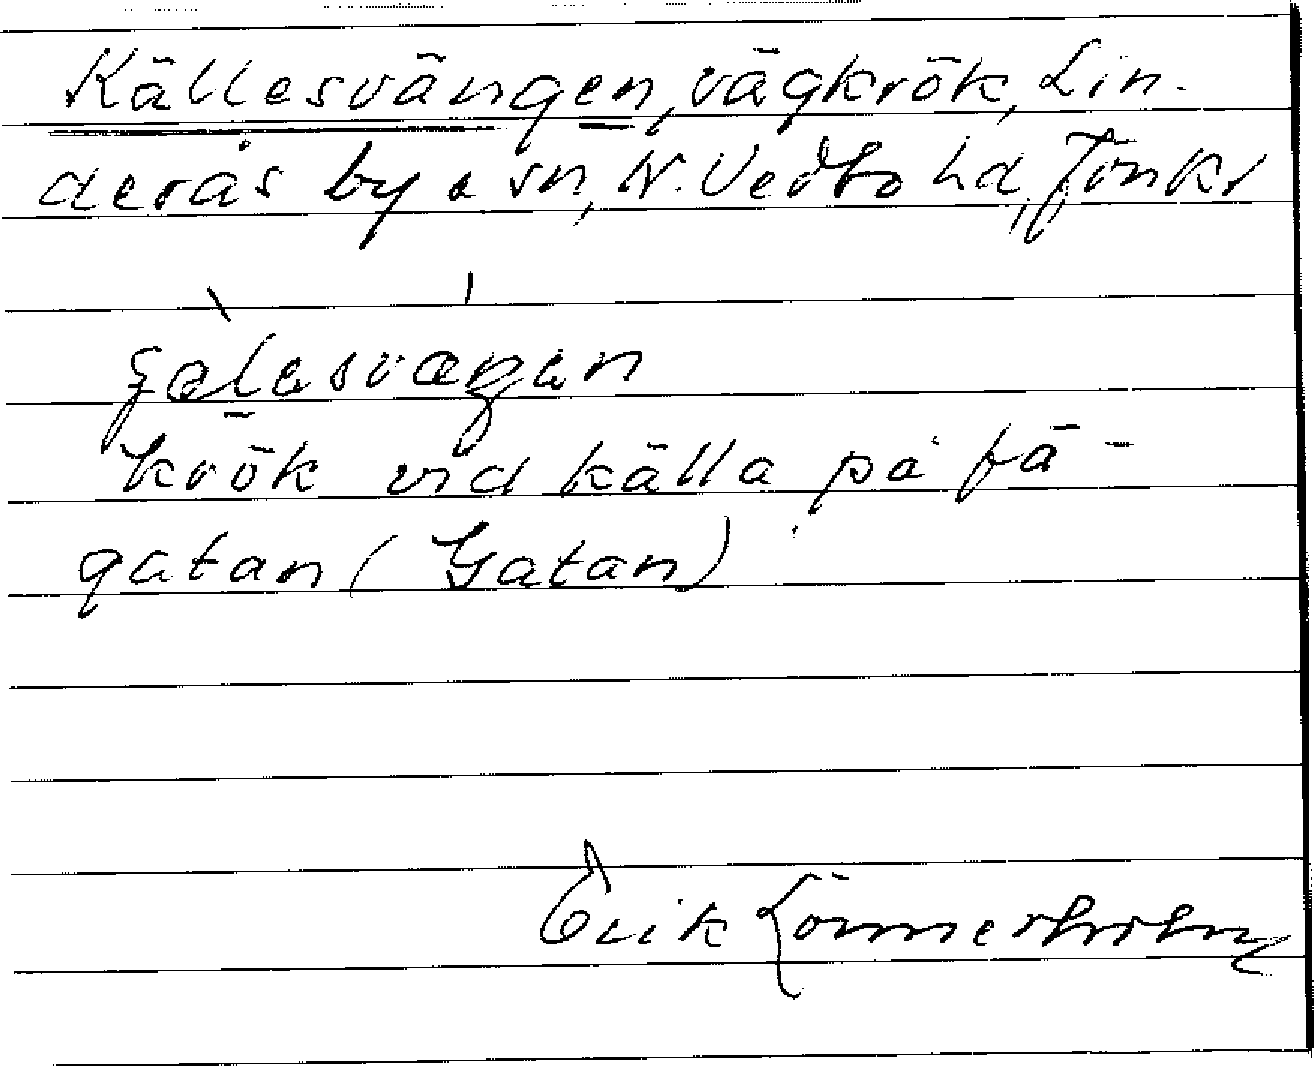 Källesvängen, vägkrök, Lin-
derås by o sn, N. Vedbo hd, Jönk l
krök vid källa på fä-
gatan (Gatan)
Erik Lönnerholm